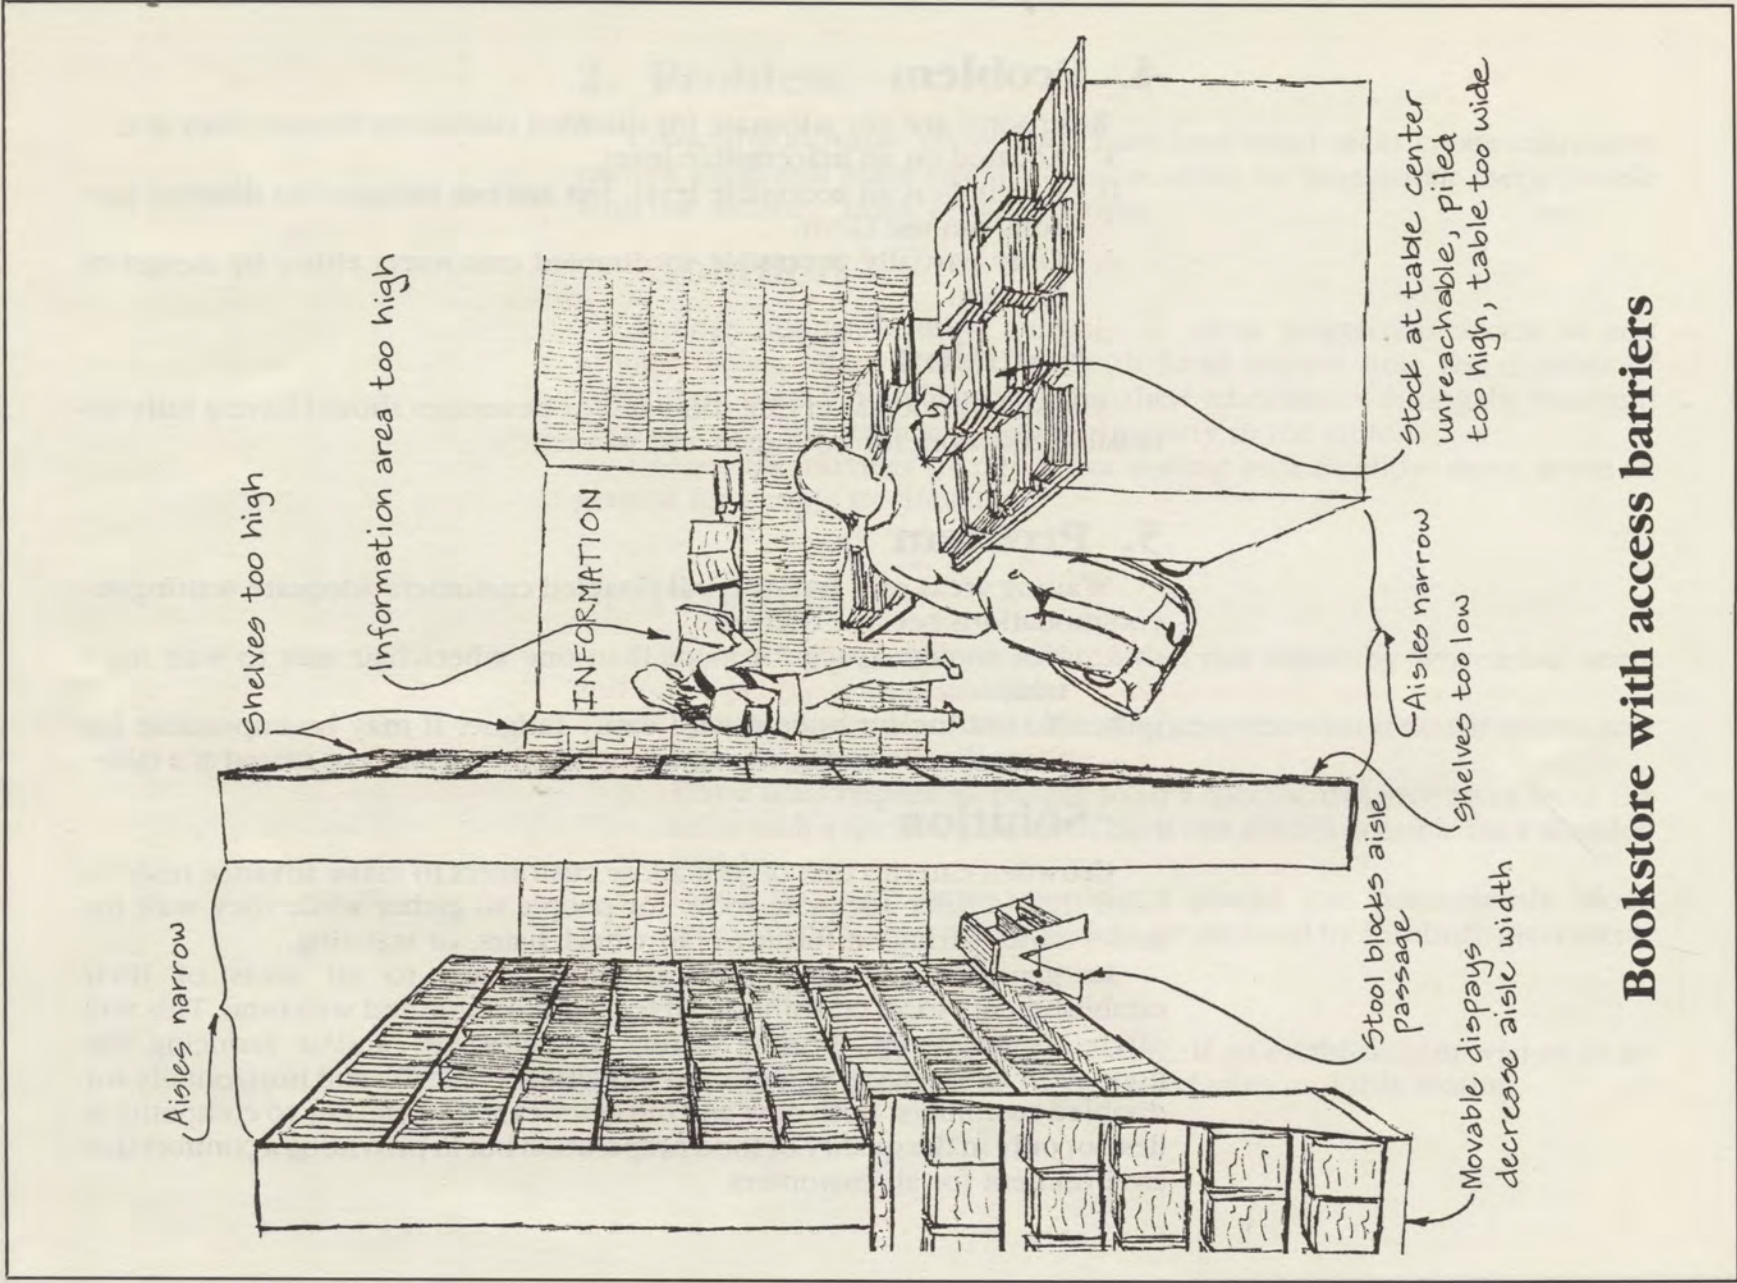 Shelves too high
Information area too high
Aisles narrow
INFORMATION
Stock at table center
unreachable, piled
too high, table too wide
Aisles narrow
Shelves too low
Stool blocks aisle
passage
Movable dispays
decrease aisle width
Bookstore with access barriers